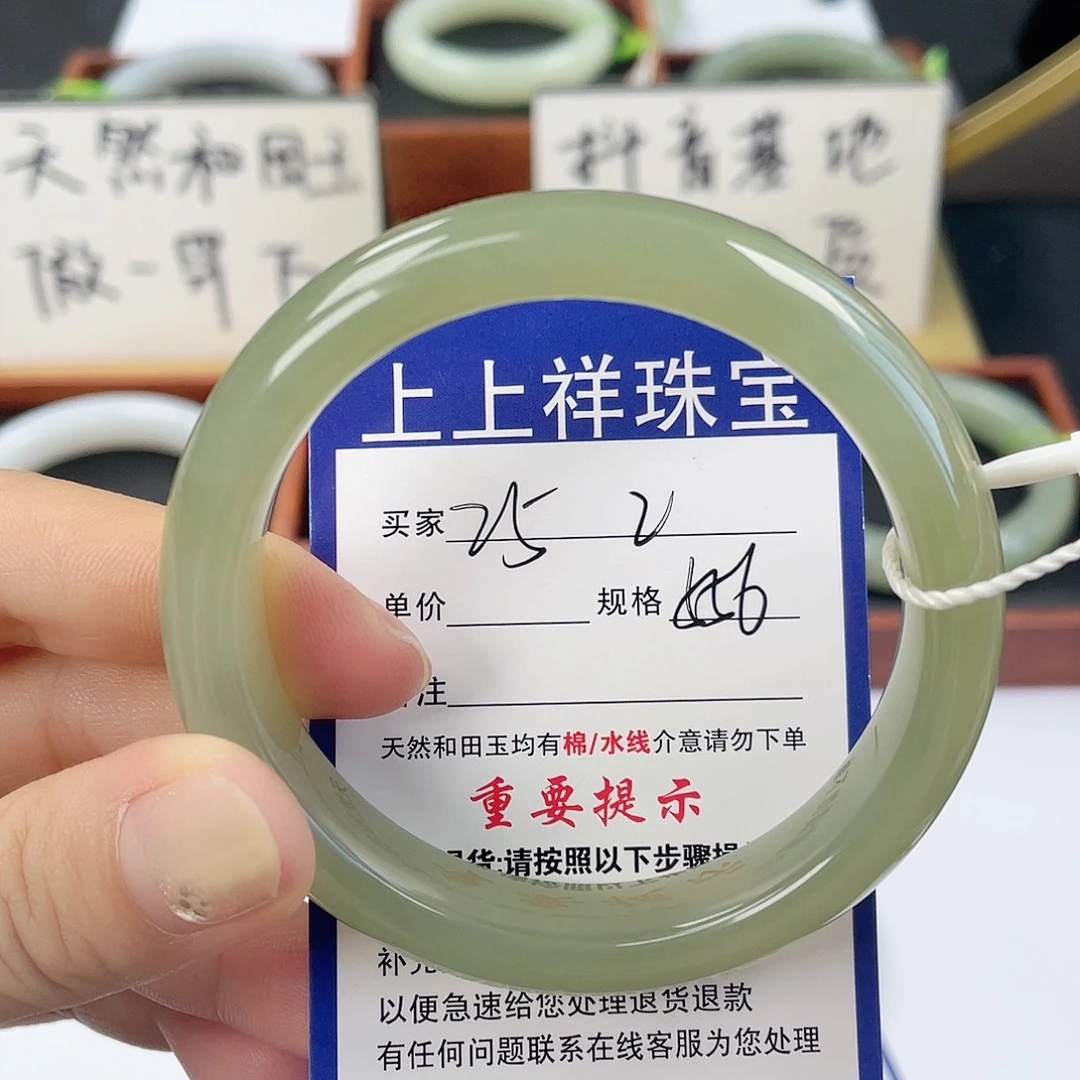 天然和田玉
做一早下
抖音基地
上上祥珠宝
买家 25 2
单价 规格
注
天然和田玉均有棉/水线介意请勿下单
重要提示
货:请按照以下步骤
补充
以便急速给您处理退货退款
有任何问题联系在线客服为您处理